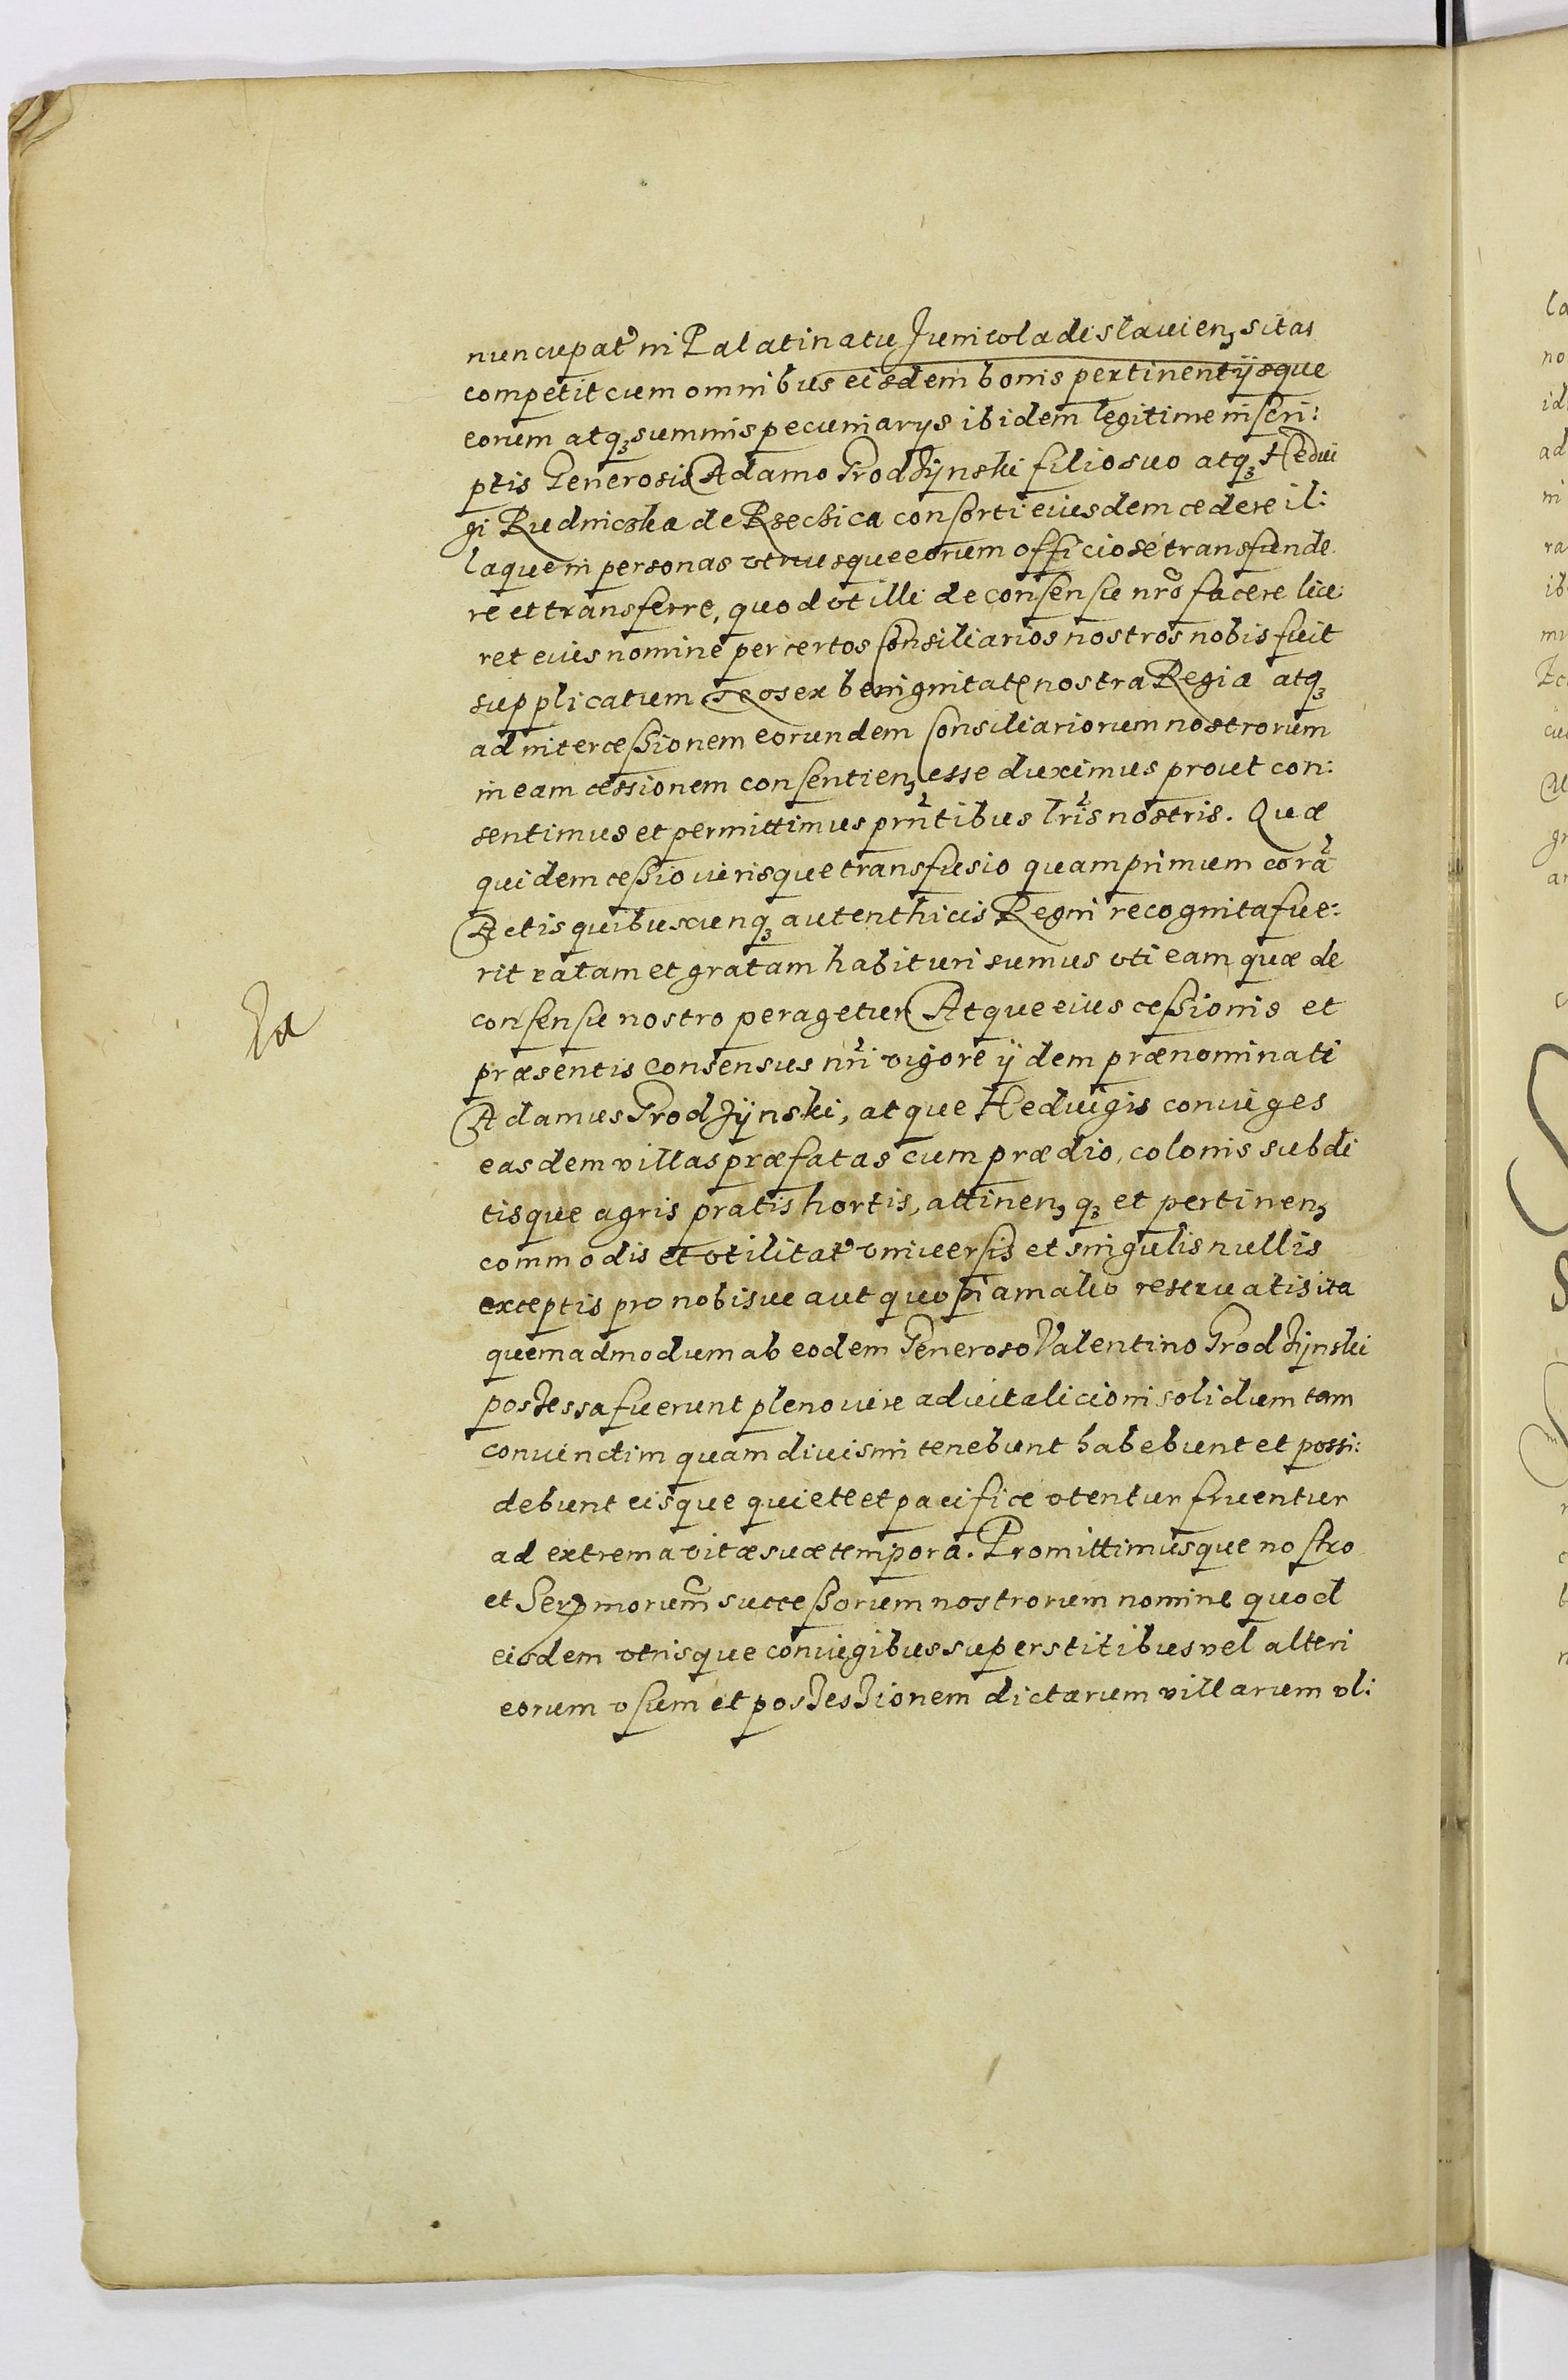 nuncupat in Palatinatu Juniwladislauien sitas
competit cum omnibus eisdem bonis pertinentijsque
eorum atq summis pecuniarijs ibidem legitime inscri:
ptis Generosis Adamo Grodzijnski filio suo atq Hedui
gi Rudniczka de consorti eiusdem cedere il:
laque in personas utriusque eorum officiose transfunde
re et transferre, quod ut illi de consensu nro facere lice
ret eius nomine per certos Consiliarios nostros nobis fuit
supplicatum Nos ex benignitate nostra Regia atq
ad intercessionem eorundem Consiliariorum nostrorum
in eam cessionem consentien esse duximus prout con:
sentimus et permittimus prntibus lris nostris. Quæ
quidem cessio iurisque transfusio quamprimum corã
Actis quibuscunq autenthicis Regni recognita fue:
rit ratam et gratam habituri sumus uti eam quæ de
consensu nostro peragetur Atque eius cessionis et
præsentis consensus nri vigore ijdem prænominati
Adamus Grodzijnski, atque Heduigis coniuges
easdem villas præfatas cum prædio, colonis subdi
tisque agris pratis hortis, attinen q et pertinen
commodis et utilitat universis et singulis nullis
exceptis pro nobisue aut quopiam alio reservatis ita
quemadmodum ab eodem Generoso Valentino Grodzijnski
possessa fuerunt pleno iure aduitalicio in solidum tam
coniunctim quam diuisim tenebunt habebunt et possi:
debunt eisque quiete et pacifice utentur fruentur
ad extrema vitæ suæ tempora. Promittimusque nostro
et Sermorum successorum nostrorum nomine quod
eisdem utrisque coniugibus superstitibus vel alteri
eorum usum et possessionem dictarum villarum ul: